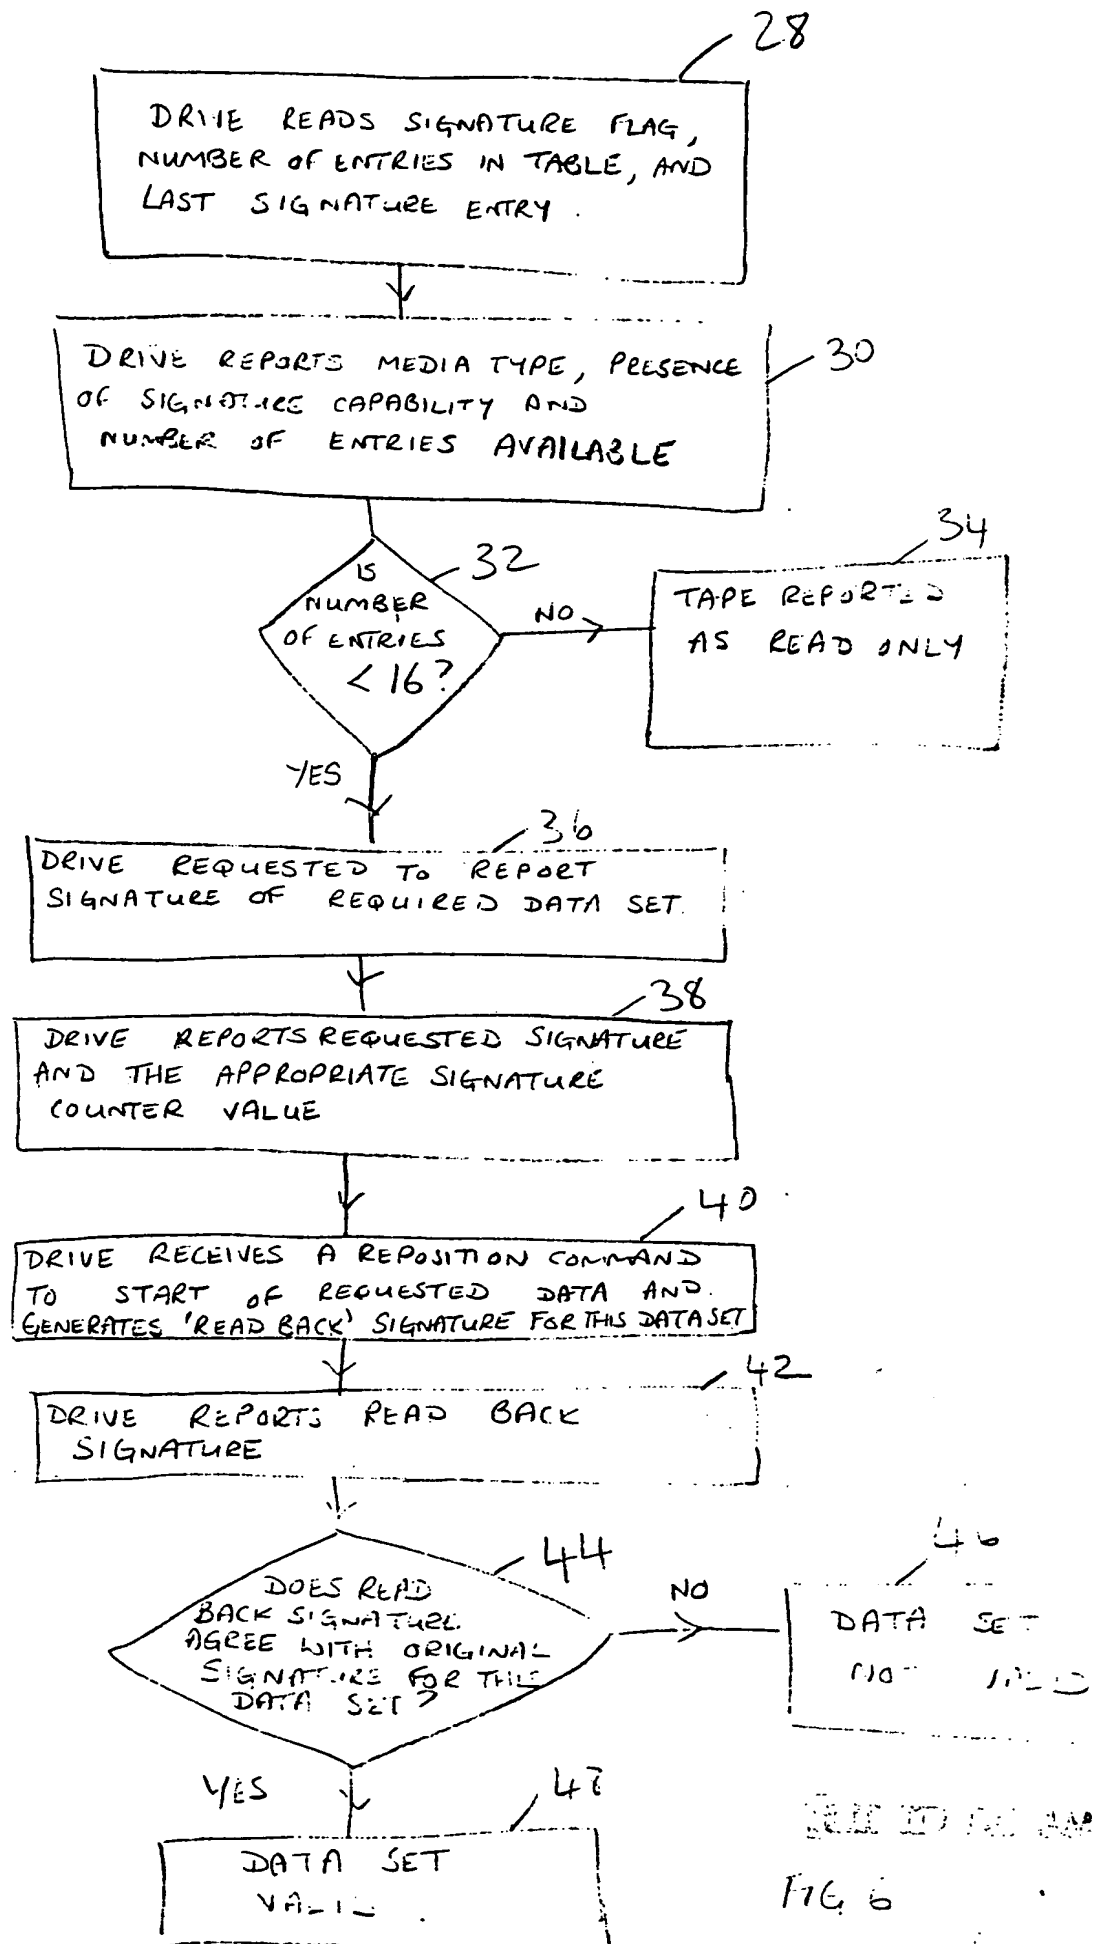 28
DRIVE READS SIGNATURE FLAG,
NUMBER OF ENTRIES IN TABLE, AND
LAST SIGNATURE ENTRY.
DRIVE REPORTS MEDIA TYPE, PRESENCE
OF SIGNATURE CAPABILITY AND
NUMBER OF ENTRIES AVAILABLE
30
32
IS
NUMBER
OF ENTRIES
< 16?
NO
34
TAPE REPORTED
AS READ ONLY
YES
36
DRIVE REQUESTED TO REPORT
SIGNATURE OF REQUIRED DATA SET.
38
DRIVE REPORTS REQUESTED SIGNATURE
AND THE APPROPRIATE SIGNATURE
COUNTER VALUE
40
DRIVE RECEIVES A REPOSITION COMMAND
TO START OF REQUESTED DATA AND
GENERATES 'READ BACK' SIGNATURE FOR THIS DATA SET
42
DRIVE REPORTS READ BACK
SIGNATURE
44
DOES READ
BACK SIGNATURE
AGREE WITH ORIGINAL
SIGNATURE FOR THIS
DATA SET?
NO
46
DATA SET
NOT
YES
DATA SET
VALID
FIG 6